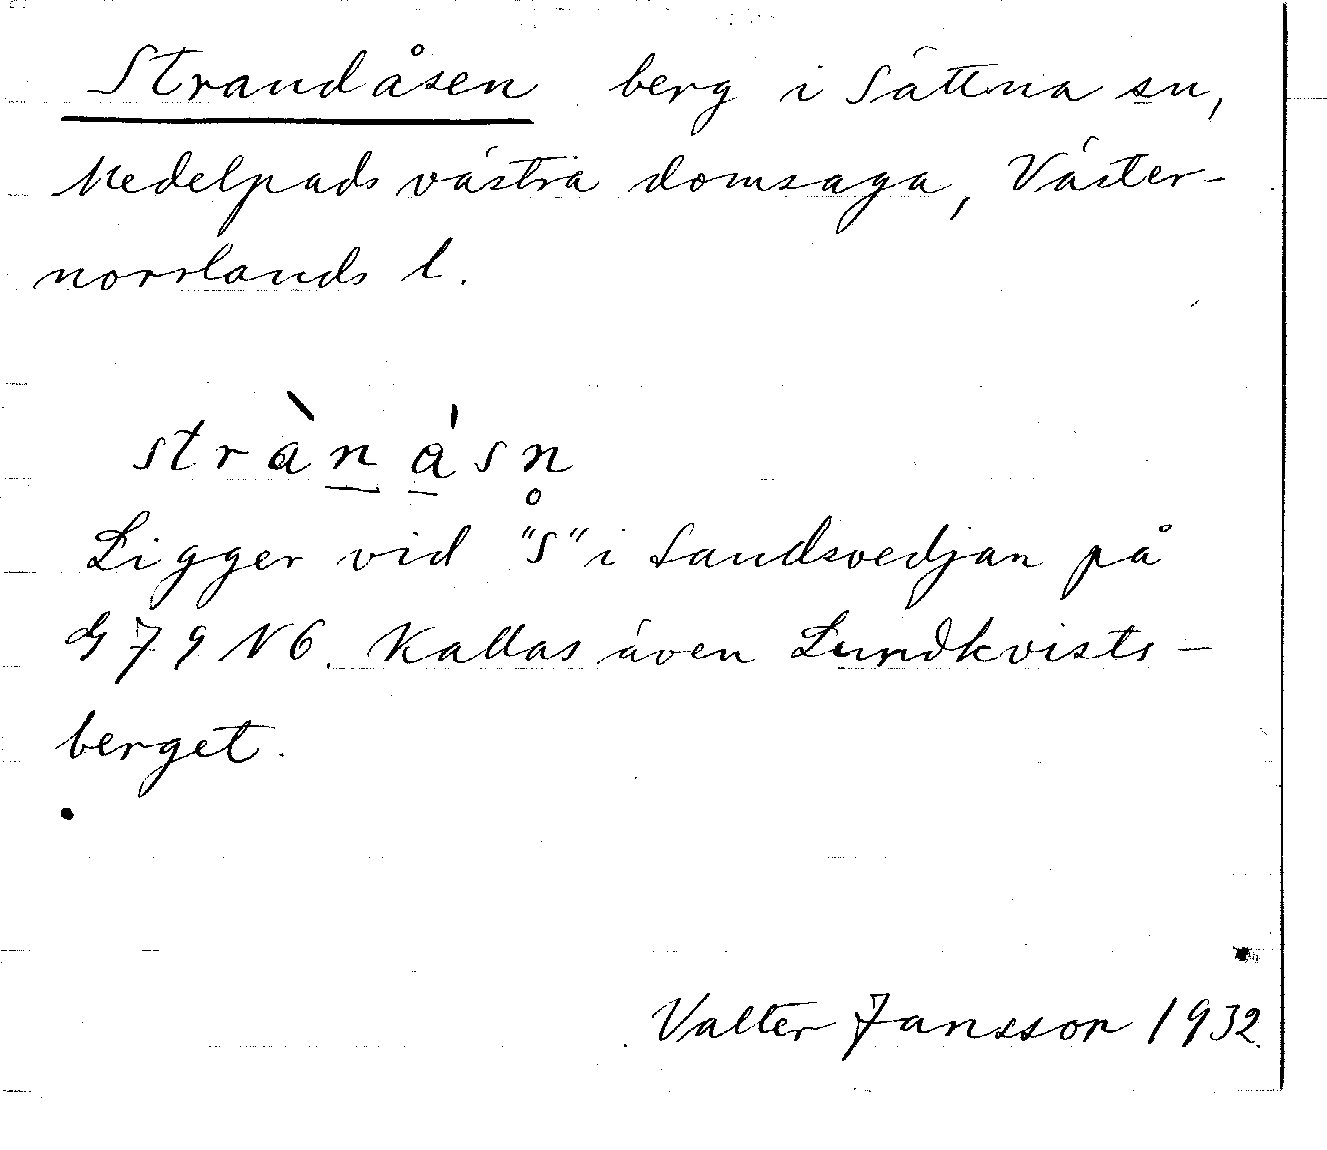 Strandåsen berg i Sättna sn,
Medelpads västra domsaga, Väster-
norrlands l.
strànásn̥
Ligger vid "S" i Sandsvedjan på
G 79 N6. Kallas även Lundkvists-
berget.
Valter Jansson 1932.